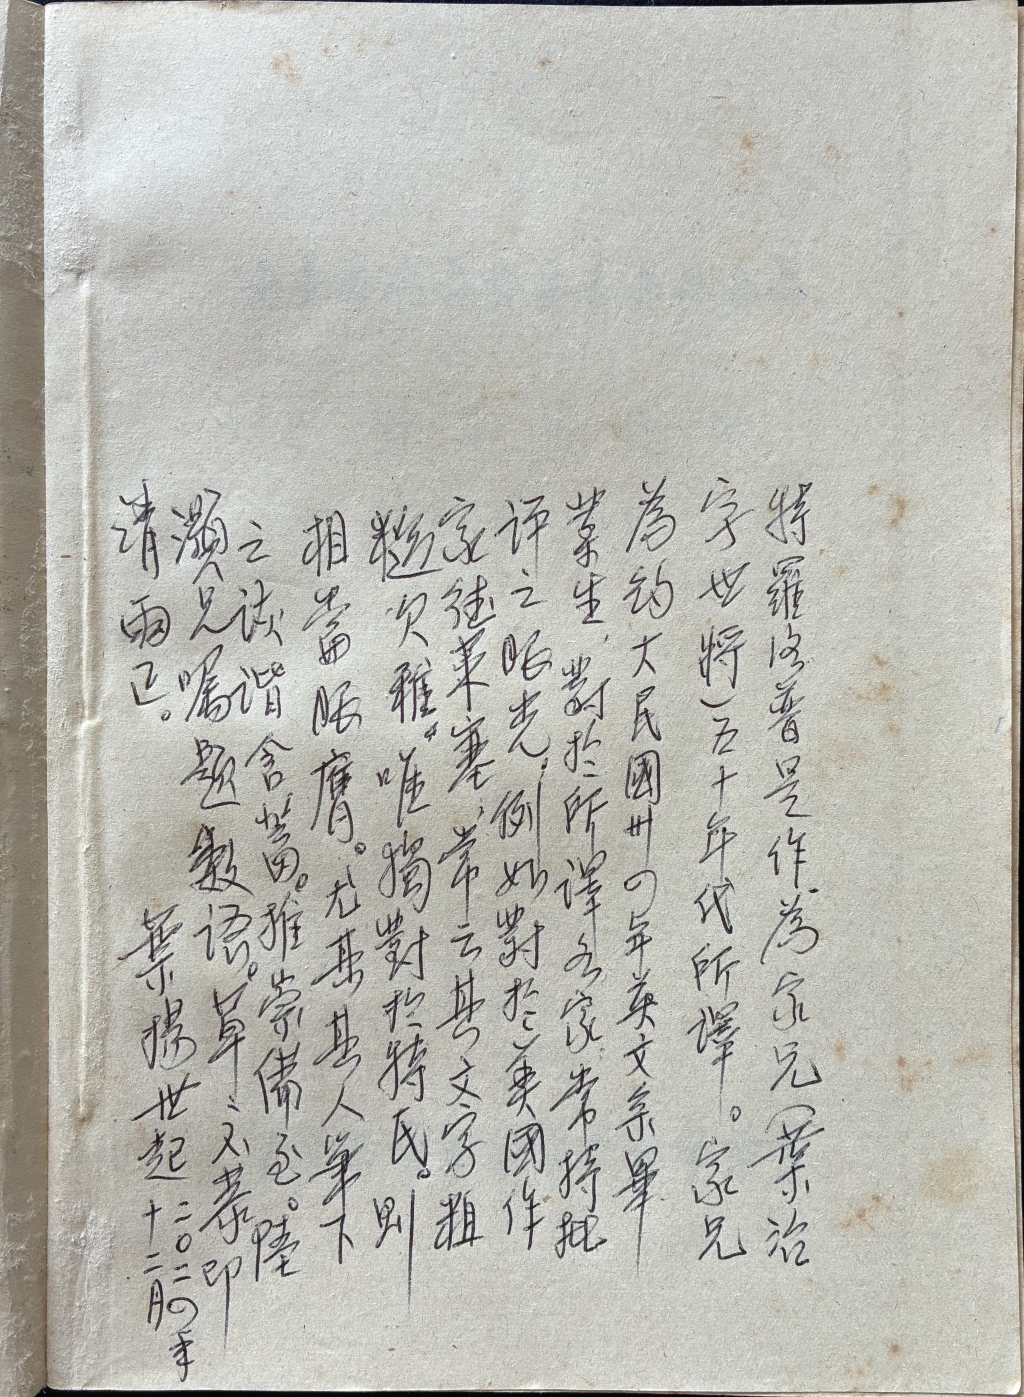 特羅洛普是作為家兄（葉治
字世將）五十年代所譯。家兄
為約大民國卅四年英文系畢
業生，對於所譯各家，常持批
評之眼光。例如對於美國作
家德萊塞，常云其文字粗
糙欠雅。唯獨對於特氏。則
相當服膺。尤其其人筆下
之詼諧含蓄。推崇備至。陸
灝兄囑題數語。草之不恭即
請雨正。
葉揚世起 二〇二四年
十二月